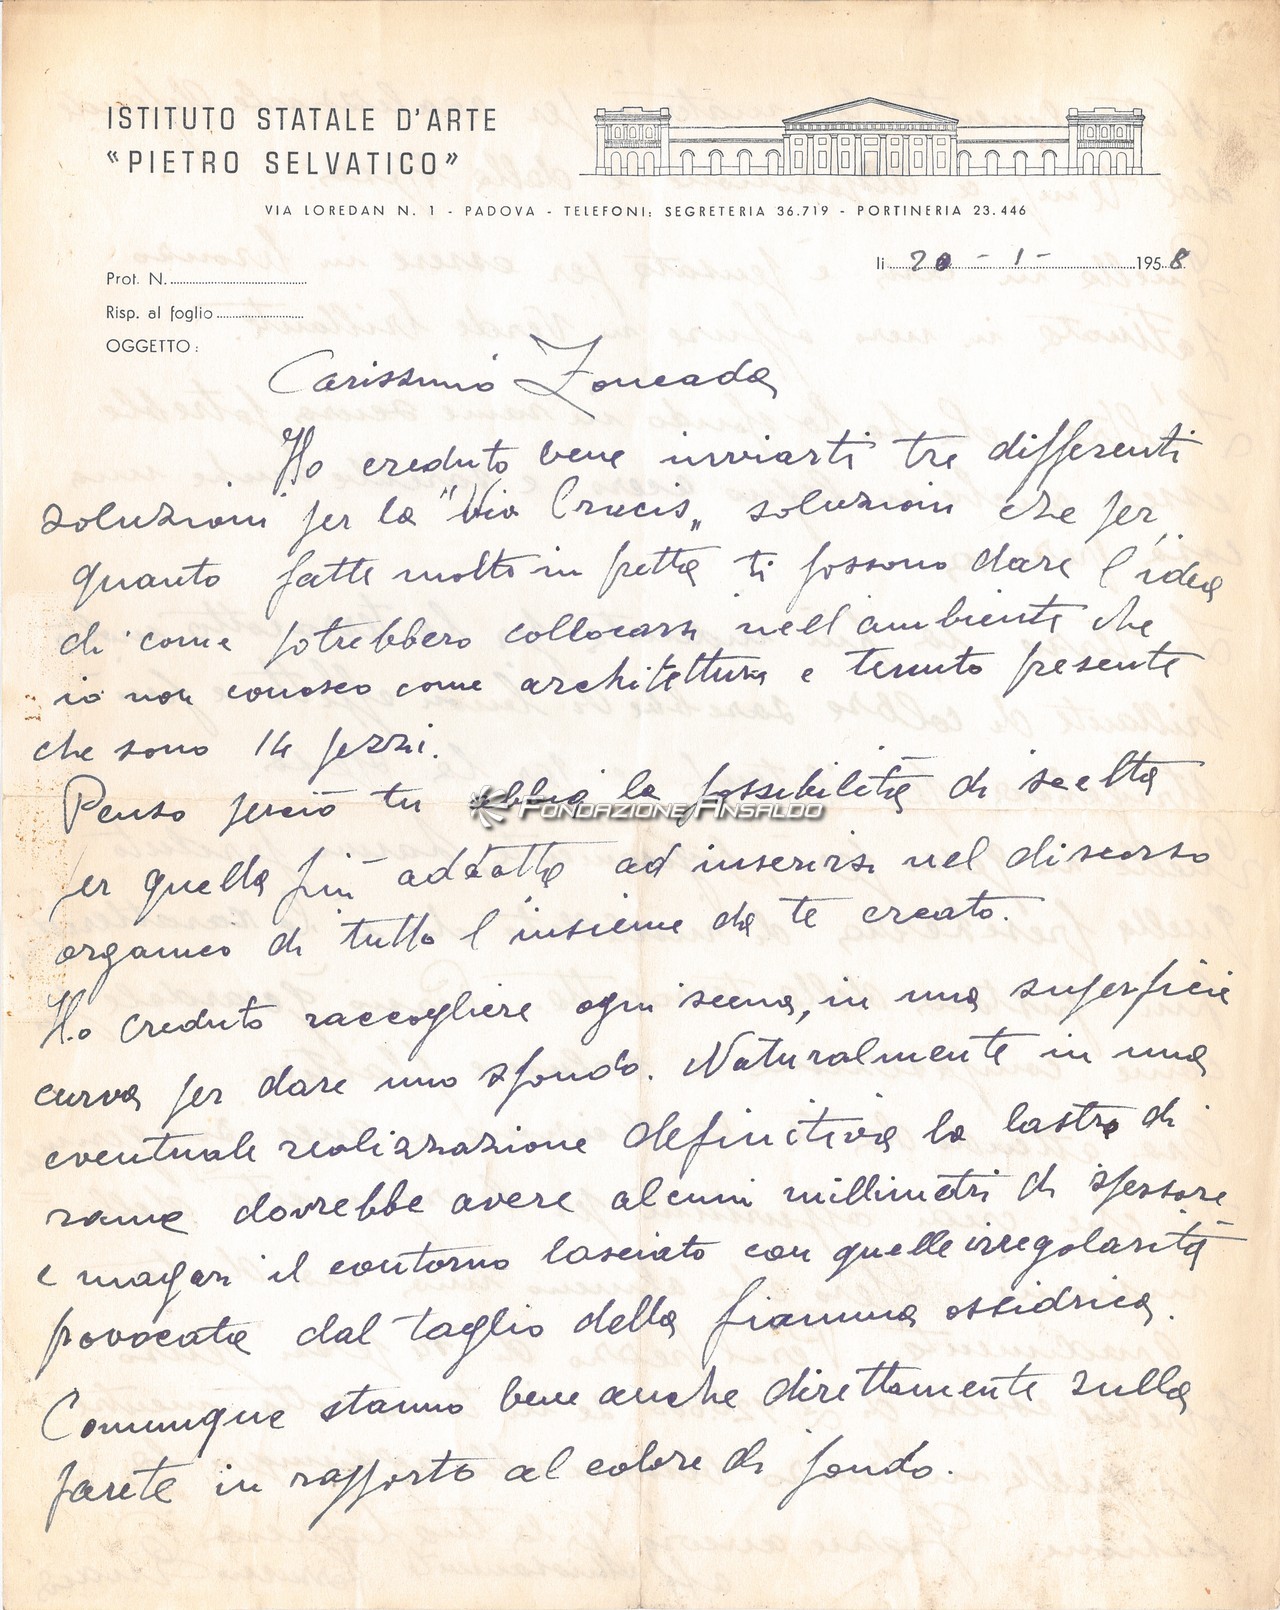 ISTITUTO STATALE D'ARTE
“PIETRO SELVATICO”
VIA LOREDAN N. 1 - PADOVA - TELEFONI: SEGRETERIA 36.719 - PORTINERIA 23.446
li 20 - 1 - 1958
Prot. N.
Risp. al foglio
OGGETTO:
Carissimo Zoncada
Ho creduto bene inviarti tre differenti
soluzioni per la "Via Crucis" soluzioni che per
quanto fatte molto in fretta ti possono dare l'idea
di come potrebbero collocarsi nell'ambiente che
io non conosco come architettura e tenuto presente
che sono 14 pezzi.
Penso perciò tu abbia la possibilità di scelta
FONDAZIONE ANSALDO
per quella più addatta ad inserirsi nel discorso
organico di tutto l'insieme da te creato.
Ho creduto raccogliere ogni scena, in una superficie
curva per dare uno sfondo. Naturalmente in una
eventuale realizzazione definitiva la lastra di
rame dovrebbe avere alcuni millimetri di spessore
e magari il contorno lasciato con quelle irregolarità
provocate dal taglio della fiamma ossidrica.
Comunque stanno bene anche direttamente sulla
parete in rapporto al colore di fondo.